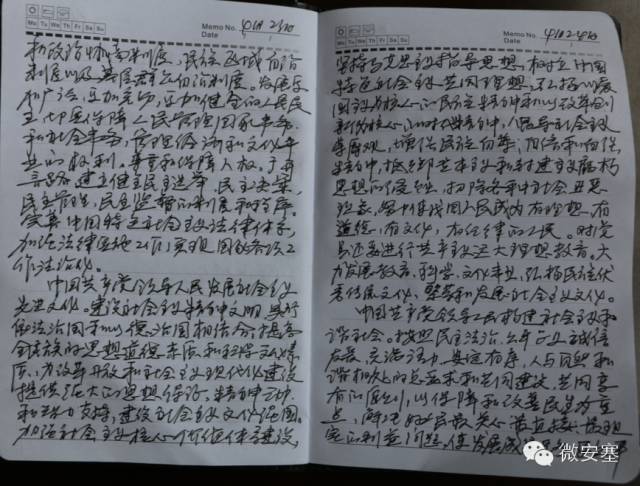 Memo No. 4102-410
Date
Mo Tu We Th Fr Sa Su
和政治协商制度、民族区域自治
制度以及基层群众自治制度。发展更
加广泛、更加充分、更加健全的人民民
主,切实保障人民管理国家事务
和社会事务、管理经济和文化事
业的权利。尊重和保障人权。广开
言路,建立健全民主选举、民主决策、
民主管理、民主监督的制度和程序。
完善中国特色社会主义法律体系,
加强法律实施工作,实现国家各项工
作法治化。
中国共产党领导人民发展社会主义
先进文化。建设社会主义精神文明,实行
依法治国和以德治国相结合,提高
全民族的思想道德素质和科学文化素
质,为改革开放和社会主义现代化建设
提供强大的思想保证、精神动力
和智力支持,建设社会主义文化强国。
加强社会主义核心价值体系建设,
Memo No. 4102-410
Date
Mo Tu We Th Fr Sa Su
坚持马克思主义指导思想,树立中国
特色社会主义共同理想,弘扬以爱
国主义为核心的民族精神和以改革创
新为核心的时代精神,倡导社会主义
荣辱观,增强民族自尊、自信和自强
精神,抵御资本主义和封建主义腐朽
思想的侵蚀,扫除各种社会丑恶
现象,努力使我国人民成为有理想、有
道德、有文化、有纪律的人民。对党
员还要进行共产主义远大理想教育。大
力发展教育、科学、文化事业,弘扬民族优
秀传统文化,繁荣和发展社会主义文化。
中国共产党领导人民构建社会主义和
谐社会。按照民主法治、公平正义、诚信
友爱、充满活力、安定有序、人与自然和
谐相处的总要求和共同建设、共同享
有的原则,以保障和改善民生为重
点,解决好人民最关心、最直接、最现
实的利益问题,使发展成
微安塞